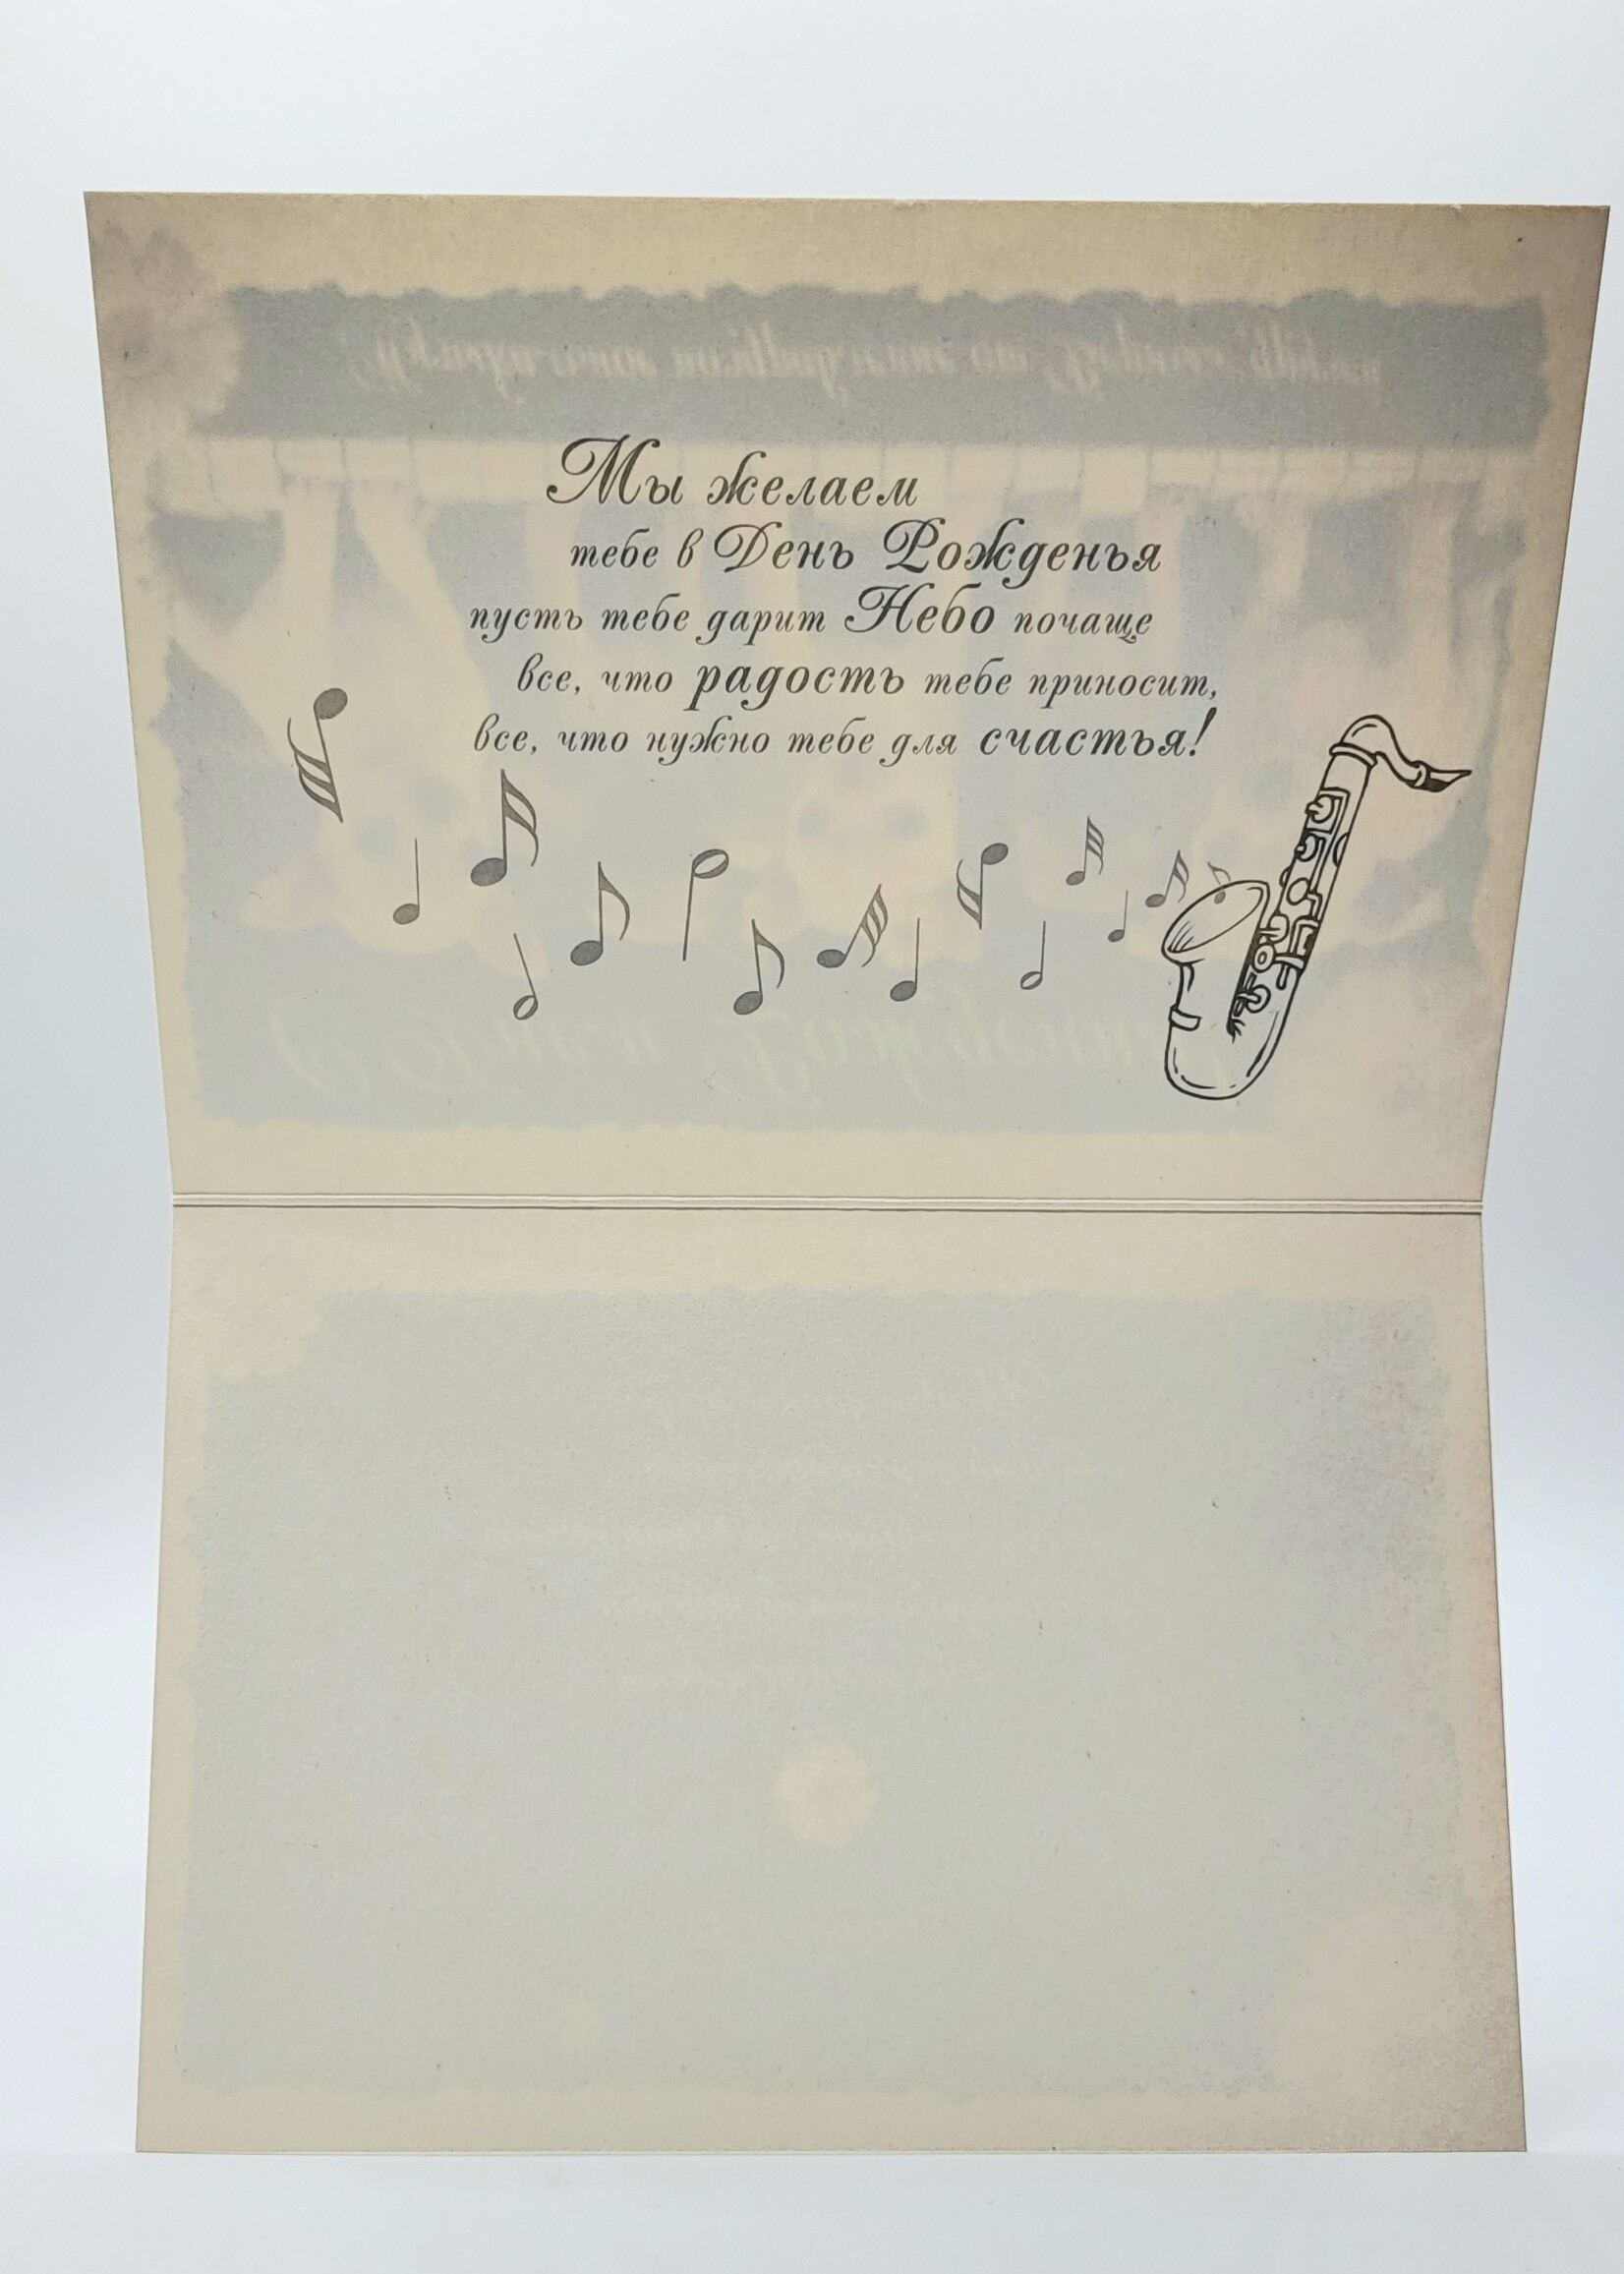 Мы желаем
тебе в День Рожденья
пусть тебе дарит Небо почаще
все, что радость тебе приносит,
все, что нужно тебе для счастья!